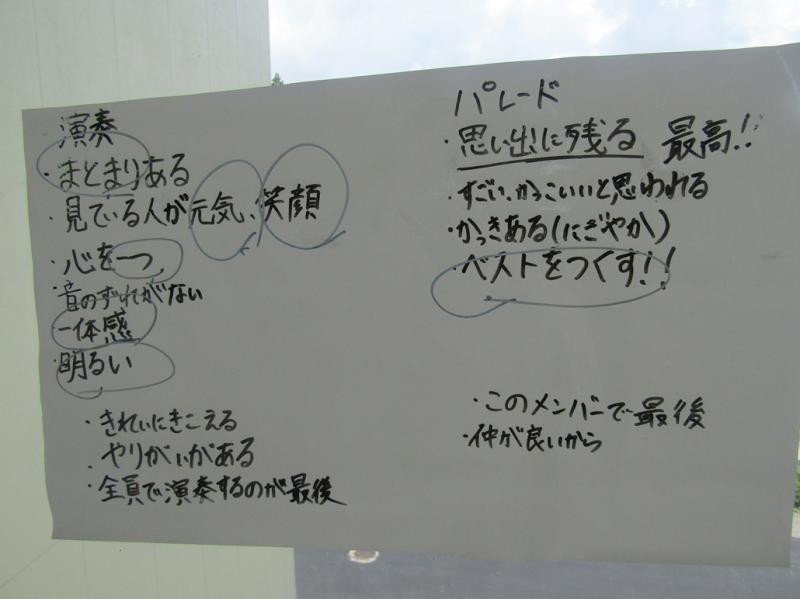 演奏
・まとまりある
・見ている人が元気、笑顔
・心を一つ
・音のずれがない
・一体感
・明るい
・きれいにきこえる
・やりがいがある
・全員で演奏するのが最後
パレード
・思い出に残る 最高!!
・すごい、かっこいいと思われる
・かっきある(にぎやか)
・ベストをつくす!!
・このメンバーで最後
・仲が良いから